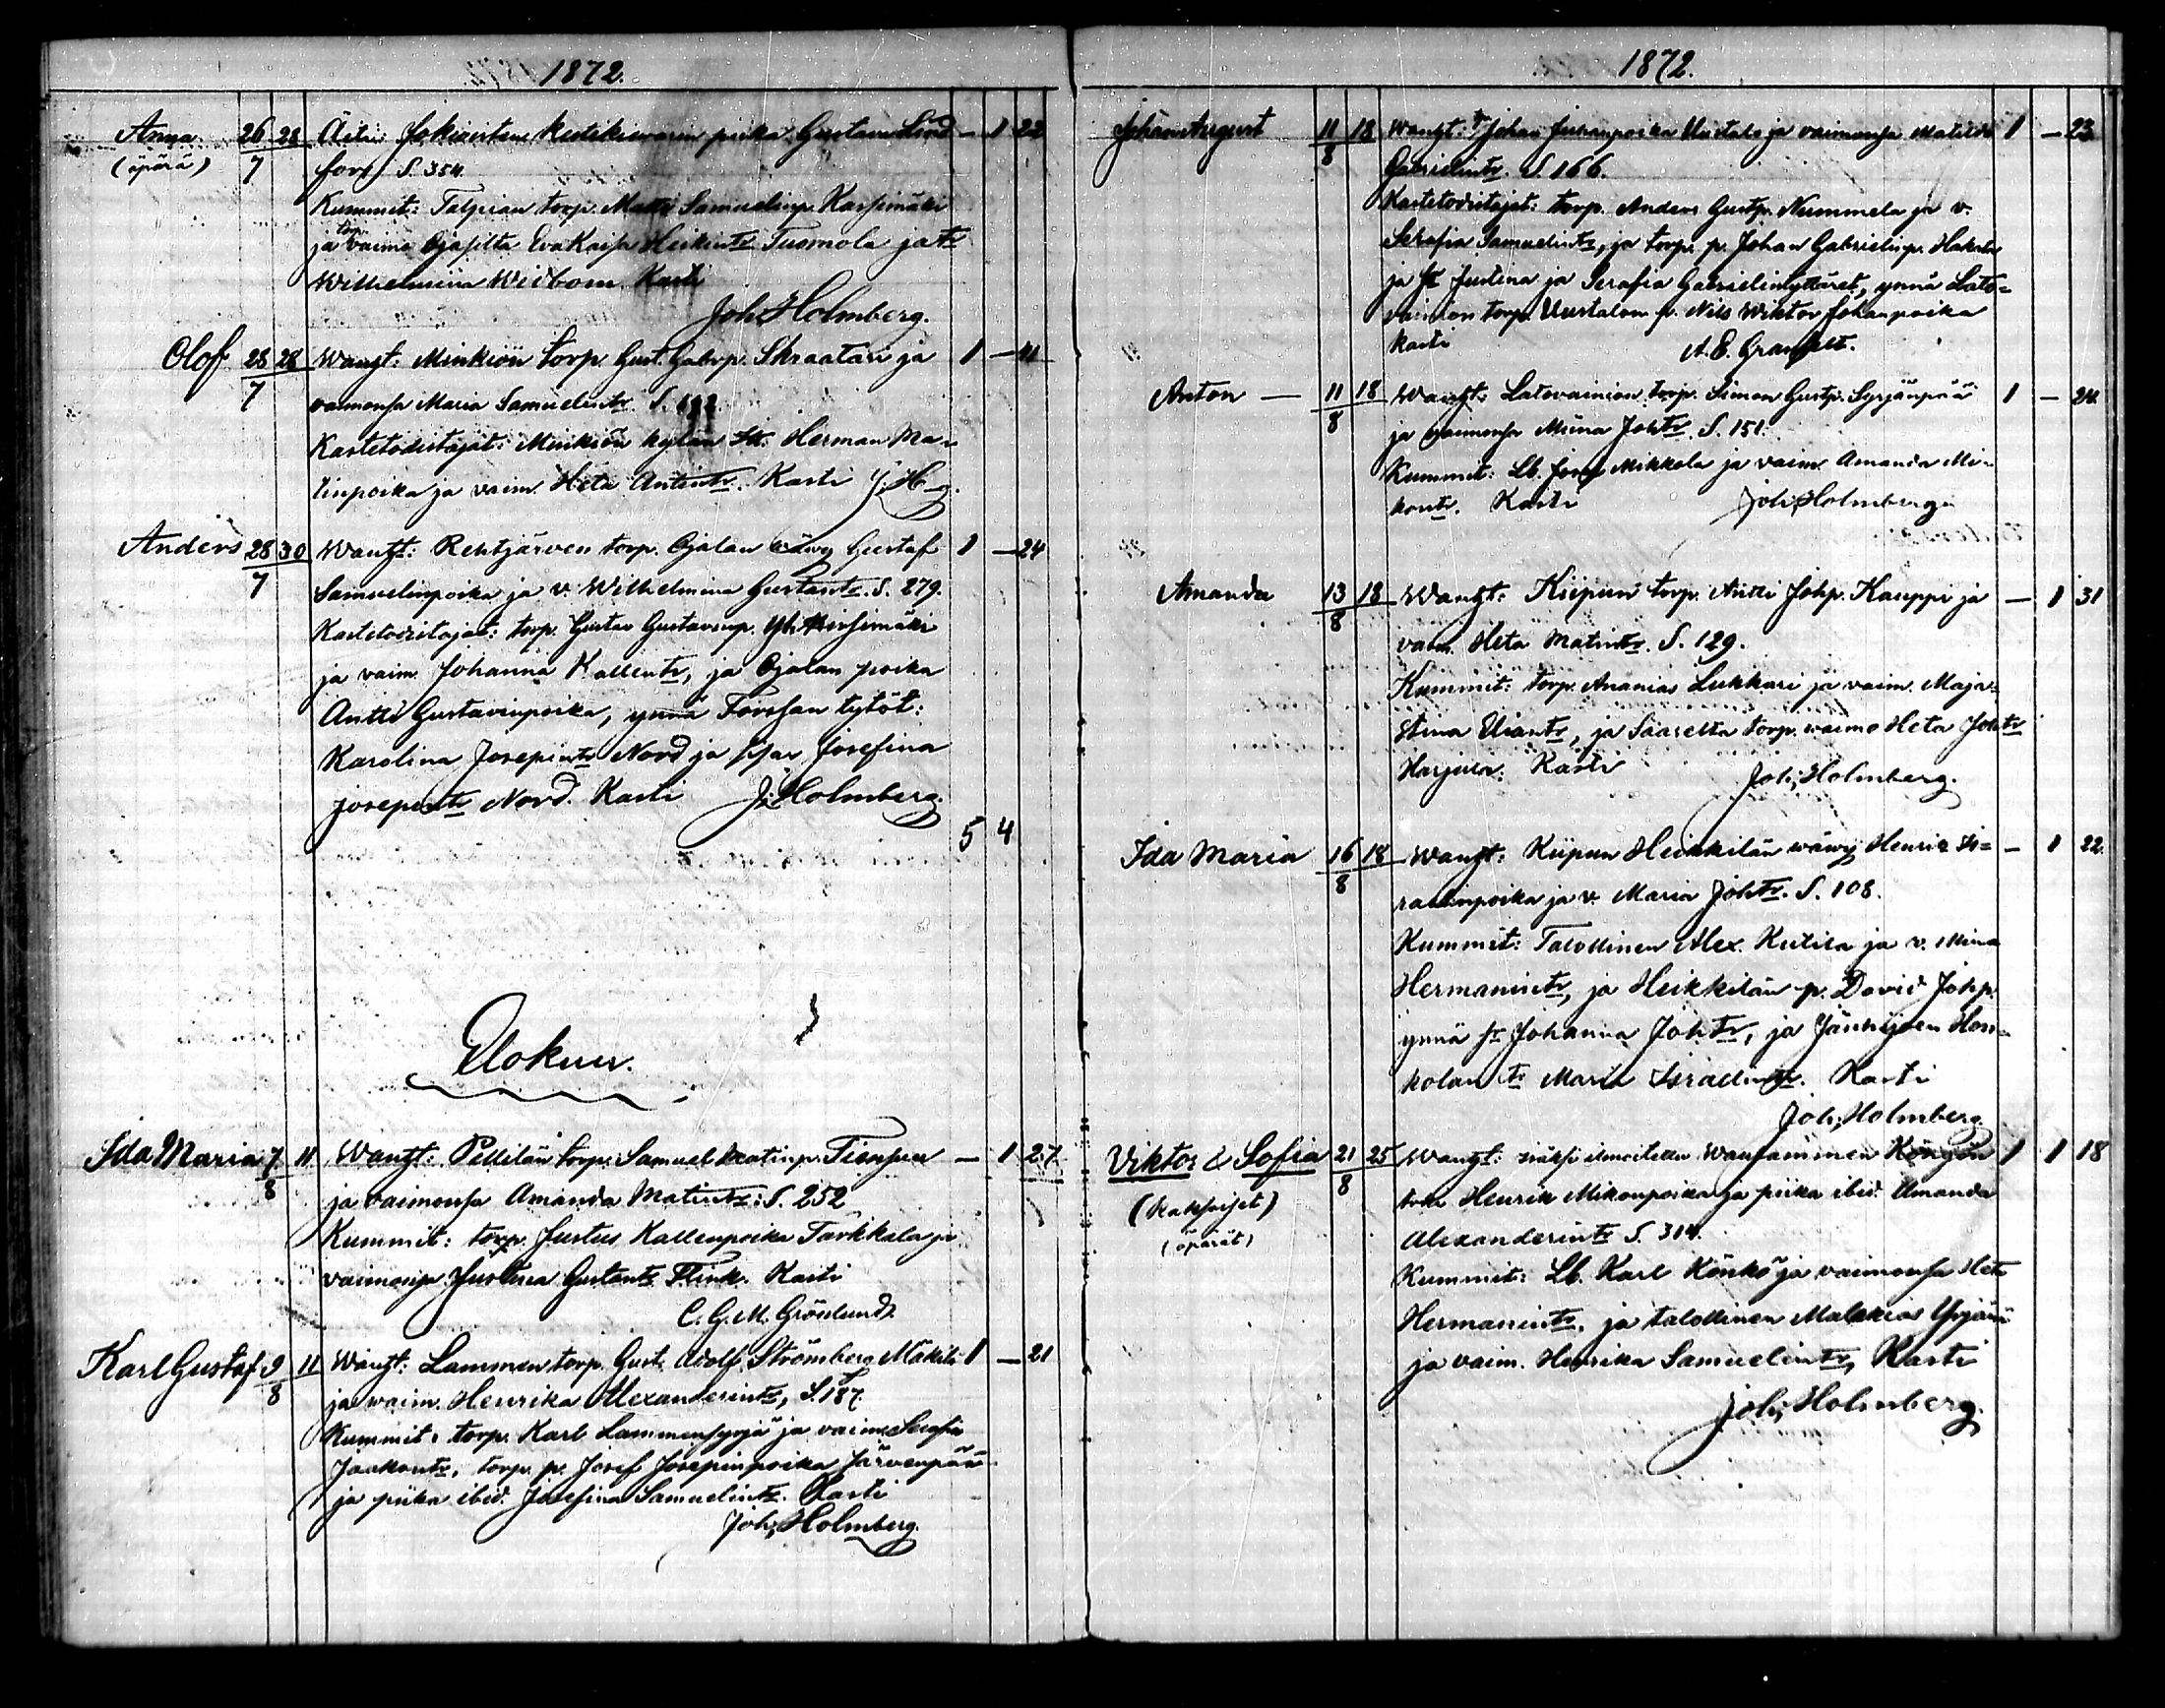 1872.
Anna 26 28 Äiti: Jokioisten piika Gustava Lind — 1 22
(äpärä) 7 fors S. 354.
Kummit: Talpian torp. Matti Samuelinp.
torp.
ja vaimo Ojasilta Eva Kaisa Heikintr Tuomola ja tr
Wilhelmiina Widbom. Kasti
Joh. Holmberg.
Olof 28 28 Wanht: Minkiön torp. Gust. Gabrp. Skraatari ja 1 — 41
7 vaimonsa Maria Samuelintr. S.
Kastetodistajat: Minkiön kylän Herman Ma-
tinpoika ja vaim. Heta Antintr. Kasti J. H–g.
Anders 28 30 Wanht: Rehtjärven torp. Ojalan wäwy Gustaf 1 — 24
7 Samuelinpoika ja v. Wilhelmina Gustavtr. S. 279.
Kastetodistajat: torp. Gustav Gustavinp. Yli Hirsimäki
ja vaim. Johanna Kallentr, ja Ojalan poika
Antti Gustavinpoika, ynnä Forssan tytöt:
Karolina Josepintr Nord ja Josefina
Josepintr Nord. Kasti J. Holmberg.
5 4
Elokuu.
Ida Maria 7 11 Wanht: Pellilän torp. Samuel Matinp. Tienpää — 1 27
8 ja vaimonsa Amanda Matintr: S. 252
Kummit: torp. Justus Kallenpoika Tarkkala ja
vaimonsa Justina Gustavtr Flink. Kasti
C. G. M. Grönlund.
Karl Gustaf 9 11 Wanht: Lammen torp. Gust. Adolf Strömberg Mäkilä 1 — 21
8 ja vaim. Henrika Alexanderintr, S. 187.
Kummit: torp. Karl Lammensyrjä ja vaim. Serafia
Jaakontr, torp. p. Josef Josepinpoika Järvenpää
ja piika ibid. Josefina Samuelintr. Kasti
Joh. Holmberg.
1872.
Johan August 11 18 Wanht: Johan Juhanpoika Uustalo ja vaimonsa Matilda 1 — 23
8 Gabrielintr. S. 166.
Kastetodistajat: torp. Anders Gustp. Nummela ja v.
Serafia Samuelintr, ja torp. p. Johan Gabrielinp. Hakala
ja Justina ja Serafia Gabrielintyttäret, ynnä Lato-
vainion torp. Uustalon p. Nils Wiktor Johanpoika
Kasti A. E. Granfelt.
Anton — 11 18 Wanht: Latovainion torp. Simon Gustp. Syrjänpää 1 — 24
8 ja vaimonsa Miina Johtr. S. 151.
Kummit: Lb. Mikkola ja vaim. Amanda Mi-
kontr. Kasti Joh. Holmberg.
Amanda 13 18 Wanht: Kiipun torp. Antti Johp. Kauppi ja — 1 31
8 vaim. Heta Matintr. S. 129.
Kummit: torp. Ananias Lukkari ja vaim. Maja-
Stina Eliantr, ja Saarelta torp. waimo Heta Johtr
Harjula. Kasti Joh. Holmberg.
Ida Maria 16 18 Wanht: Kiipun Heikkilän wäwy Henrik Is- — 1 22
8 raelinpoika ja v. Maria Johtr. S. 108.
Kummit: Talollinen Alex. Kutila ja v. Miina
Hermanintr, ja Heikkilän p. David Johp.
ynnä Johanna Johtr, ja Jänhijoen Hon-
kolan tr Maria Israelintr. Kasti
Joh. Holmberg.
Viktor & Sofia 21 25 Wanht: Könkön 1 1 18
(kaksoiset) 8 Henrik Mikonpoika ja piika ibid. Amanda
(äpärät) Alexanderintr S. 314.
Kummit: Lb. Karl Könkö ja vaimonsa Heta
Hermanintr, ja talollinen Malakias Ypäjä
ja vaim. Henrika Samuelintr, Kasti
Joh. Holmberg.